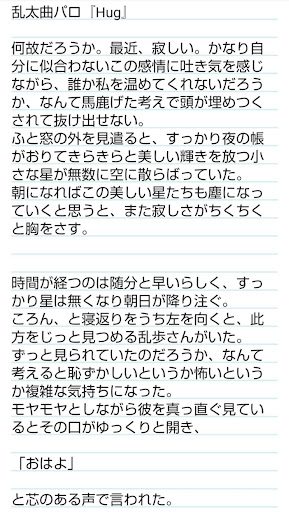 乱太曲パロ『Hug』
何故だろうか。最近、寂しい。かなり自
分に似合わないこの感情に吐き気を感じ
ながら、誰か私を温めてくれないだろう
か、なんて馬鹿げた考えで頭が埋めつく
されて抜け出せない。
ふと窓の外を見遣ると、すっかり夜の帳
がおりてきらきらと美しい輝きを放つ小
さな星が無数に空に散らばっていた。
朝になればこの美しい星たちも塵になっ
ていくと思うと、また寂しさがちくちく
と胸をさす。
時間が経つのは随分と早いらしく、すっ
かり星は無くなり朝日が降り注ぐ。
ころん、と寝返りをうち左を向くと、此
方をじっと見つめる乱歩さんがいた。
ずっと見られていたのだろうか、なんて
考えると恥ずかしいというか怖いという
か複雑な気持ちになった。
モヤモヤとしながら彼を真っ直ぐ見てい
るとその口がゆっくりと開き、
「おはよ」
と芯のある声で言われた。